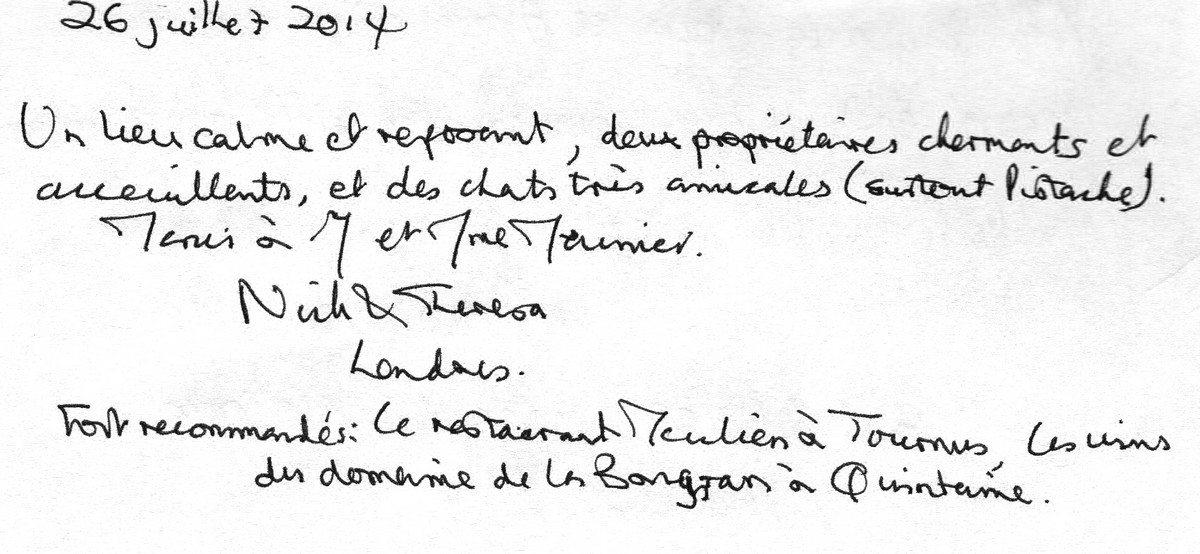 26 juillet 2014
Un lieu calme et reposant, deux propriétaires charmants et
acceuillents, et des chats très amicales (surtout Pistache).
Merci à M et Mme Meunier.
Nick & Teresa
Londres.
Fort recommandés: Le restaurant Meulien à Tournus, les vins
du domaine de la Bongran à Quintaine.